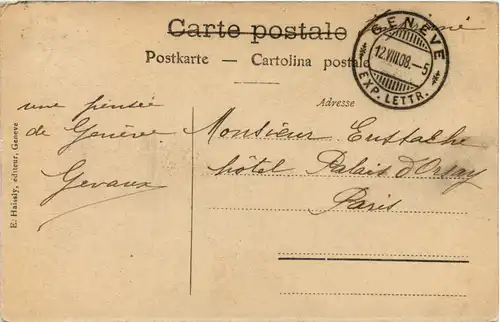 Carte postale
Imprimé
Postkarte — Cartolina postale
GENÈVE
12.VIII.08.–5
EXP. LETTR.
Adresse
une pensée
de Genève
Gevaux
Monsieur Eustache
hôtel Palais d'Orsay
Paris
E. Haissly, éditeur, Genève